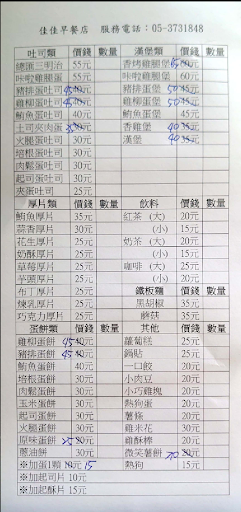 佳佳早餐店 服務電話：05-3731848
吐司類 價錢 數量 漢堡類 價錢 數量
總匯三明治 55元 香烤雞腿堡 65
咔啦雞腿蛋 55元 咔啦雞腿堡 60元
豬排蛋吐司 45 豬排蛋堡 50
雞柳蛋吐司 45 雞柳蛋堡 50
鮪魚蛋吐司 40元 鮪魚蛋堡 45元
土司夾肉蛋 香雞堡 40
火腿蛋吐司 30元 漢堡 40
培根蛋吐司 30元
肉鬆蛋吐司 30元
起司蛋吐司 30元
夾蛋吐司 25元
厚片類 價錢 數量 飲料 價錢 數量
鮪魚厚片 35元 紅茶 (大) 20元
蒜香厚片 30元 (小) 15元
花生厚片 25元 奶茶 (大) 20元
奶酥厚片 25元 (小) 15元
草莓厚片 25元 咖啡 (大) 25元
芋頭厚片 25元 (小) 20元
布丁厚片 25元 鐵板麵 價錢 數量
煉乳厚片 25元 黑胡椒 35元
巧克力厚片 25元 蘑菇 35元
蛋餅類 價錢 數量 其他 價錢 數量
雞柳蛋餅 45 蘿蔔糕 25元
豬排蛋餅 45 鍋貼 25元
鮪魚蛋餅 40元 一口餃 20元
培根蛋餅 30元 小肉豆 20元
肉鬆蛋餅 30元 小巧雞塊 20元
玉米蛋餅 30元 熱狗蛋 20元
起司蛋餅 30元 薯條 20元
火腿蛋餅 30元 雞米花 30元
原味蛋餅 25 雞酥棒 20元
蔥油餅 30元 微笑薯餅 20
※加蛋1顆 10元 15 熱狗 15元
※加起司片 10元
※加起酥片 15元